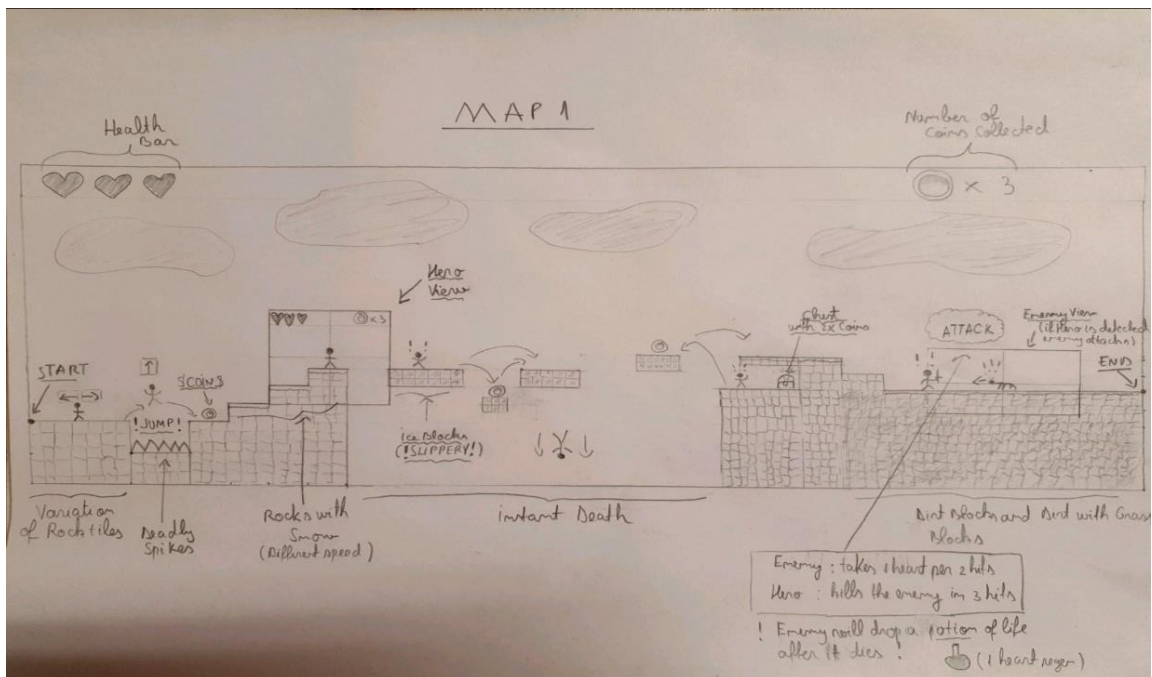 MAP 1
Health
Bar
Number of
Coins Collected
× 3
Hero
View
×3
START
!JUMP!
$COIN$
ice Blocks
(!SLIPPERY!)
Chest
with 2x Coins
ATTACK
Enemy View
(if Hero is detected
enemy attacks)
END
Variation
of Rock tiles
Deadly
Spikes
Rocks with
Snow
(Different speed)
instant Death
Dirt Blocks and Dirt with Grass
Blocks
Enemy : takes 1 heart per 2 hits
Hero : kills the enemy in 3 hits
! Enemy will drop a potion of life
after it dies !
(1 heart regen)